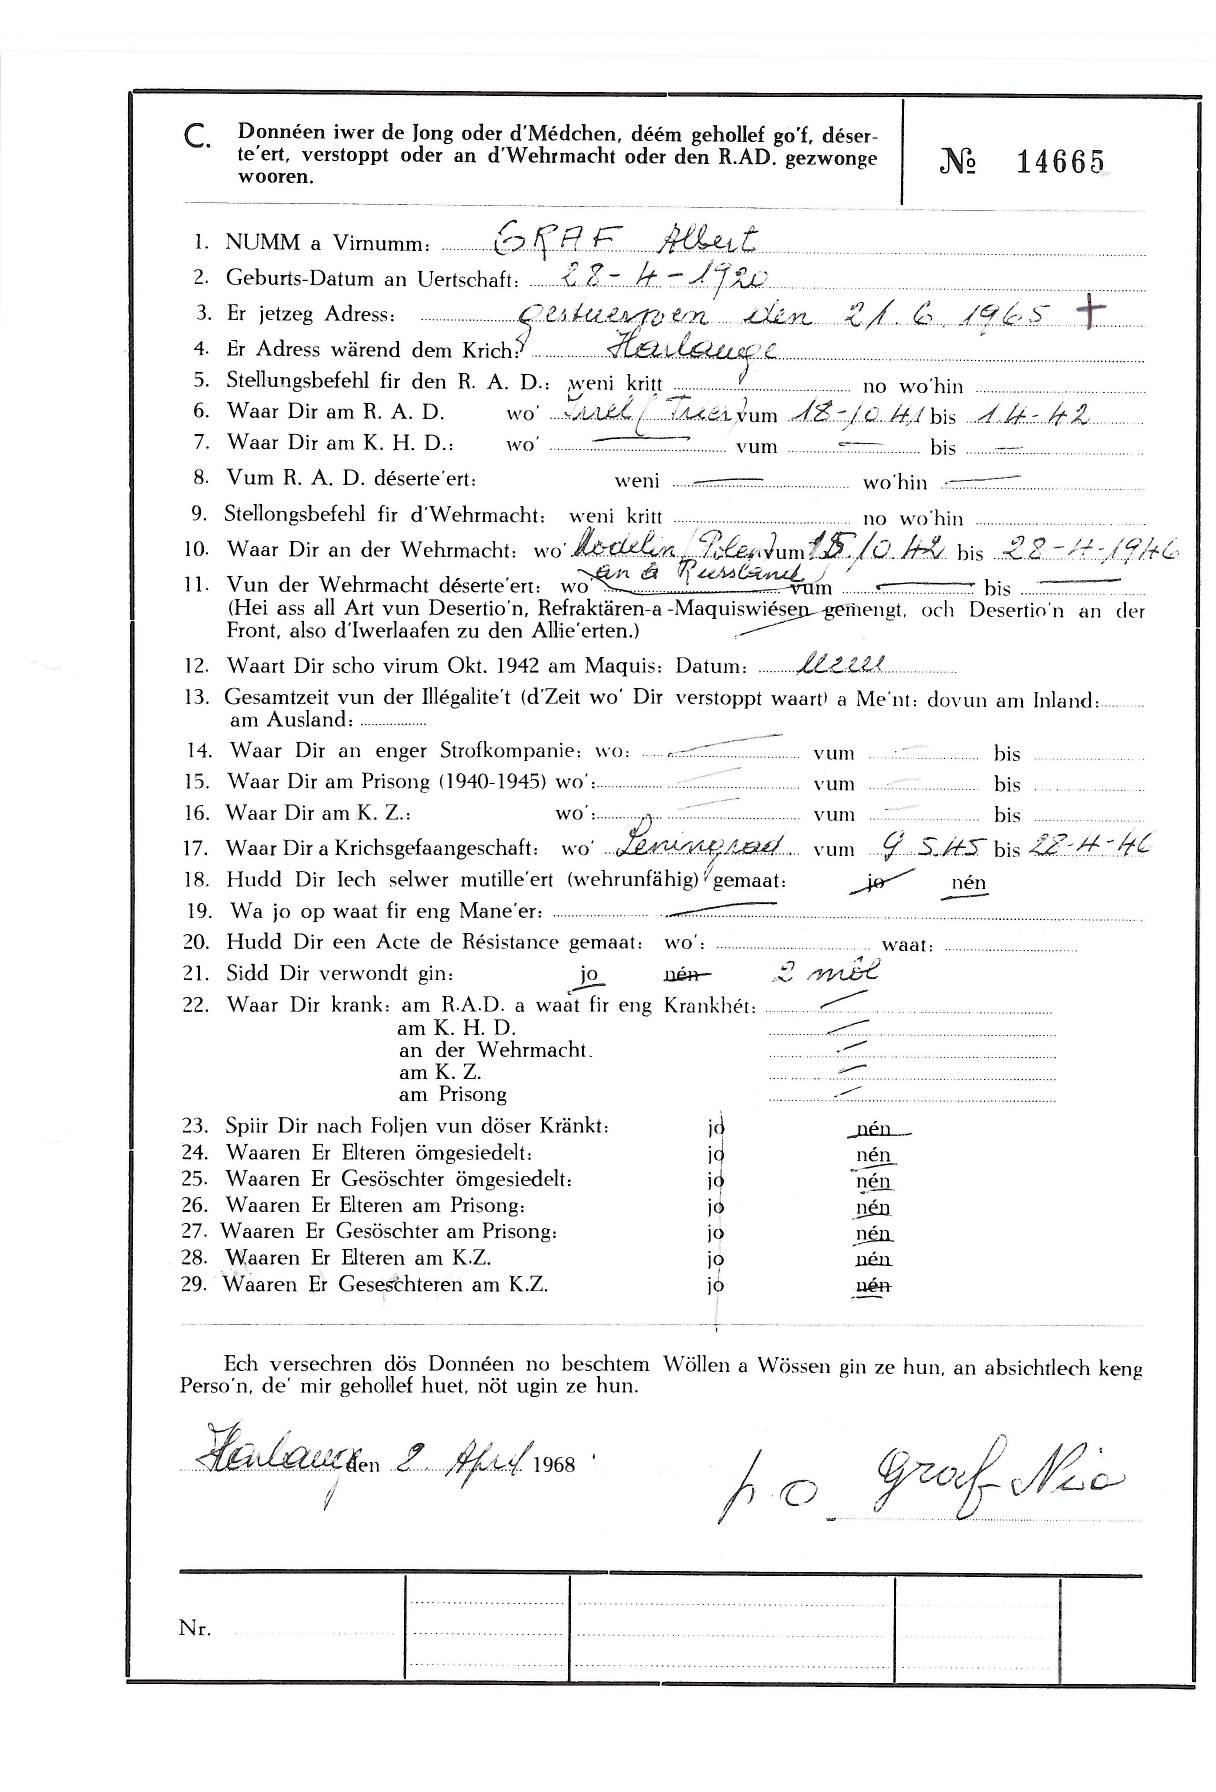 C. Donnéen iwer de Jong oder d'Médchen, déém gehollef go'f, déser-
te'ert, verstoppt oder an d'Wehrmacht oder den R.AD. gezwonge
wooren.
№ 14665
1. NUMM a Virnumm: GRAF Albert
2. Geburts-Datum an Uertschaft: 28-4-1920
3. Er jetzeg Adress: gestuerwen den 21.6.1965 +
4. Er Adress wärend dem Krich: Harlange
5. Stellungsbefehl fir den R. A. D.: weni kritt no wo'hin
6. Waar Dir am R. A. D. wo' Irrel (Trier) vum 18-10 41 bis 1.4-42
7. Waar Dir am K. H. D.: wo' vum bis
8. Vum R. A. D. déserte'ert: weni wo'hin
9. Stellongsbefehl fir d'Wehrmacht: weni kritt no wo'hin
10. Waar Dir an der Wehrmacht: wo' Modelin (Polen) vum 15.10.42 bis 28-4-1946
an a Russland
11. Vun der Wehrmacht déserte'ert: wo' vum bis
(Hei ass all Art vun Desertio'n, Refraktären-a -Maquiswiésen gemengt, och Desertio'n an der
Front, also d'Iwerlaafen zu den Allie'erten.)
12. Waart Dir scho virum Okt. 1942 am Maquis: Datum:
13. Gesamtzeit vun der Illégalite't (d'Zeit wo' Dir verstoppt waart) a Me'nt: dovun am Inland:
am Ausland:
14. Waar Dir an enger Strofkompanie: wo: vum bis
15. Waar Dir am Prisong (1940-1945) wo': vum bis
16. Waar Dir am K. Z.: wo': vum bis
17. Waar Dir a Krichsgefaangeschaft: wo' Leningrad vum 9 5.45 bis 28-4-46
18. Hudd Dir Iech selwer mutille'ert (wehrunfähig) gemaat: jo nén
19. Wa jo op waat fir eng Mane'er:
20. Hudd Dir een Acte de Résistance gemaat: wo': waat:
21. Sidd Dir verwondt gin: jo nén 2 môl
22. Waar Dir krank: am R.A.D. a waat fir eng Krankhét:
am K. H. D.
an der Wehrmacht.
am K. Z.
am Prisong
23. Spiir Dir nach Foljen vun döser Kränkt: jo nén
24. Waaren Er Elteren ömgesiedelt: jo nén
25. Waaren Er Gesöschter ömgesiedelt: jo nén
26. Waaren Er Elteren am Prisong: jo nén
27. Waaren Er Gesöschter am Prisong: jo nén
28. Waaren Er Elteren am K.Z. jo nén
29. Waaren Er Geseschteren am K.Z. jo nén
Ech versechren dös Donnéen no beschtem Wöllen a Wössen gin ze hun, an absichtlech keng
Perso'n, de' mir gehollef huet, nöt ugin ze hun.
Harlange den 2. April 1968
p o Graf Nic
Nr.